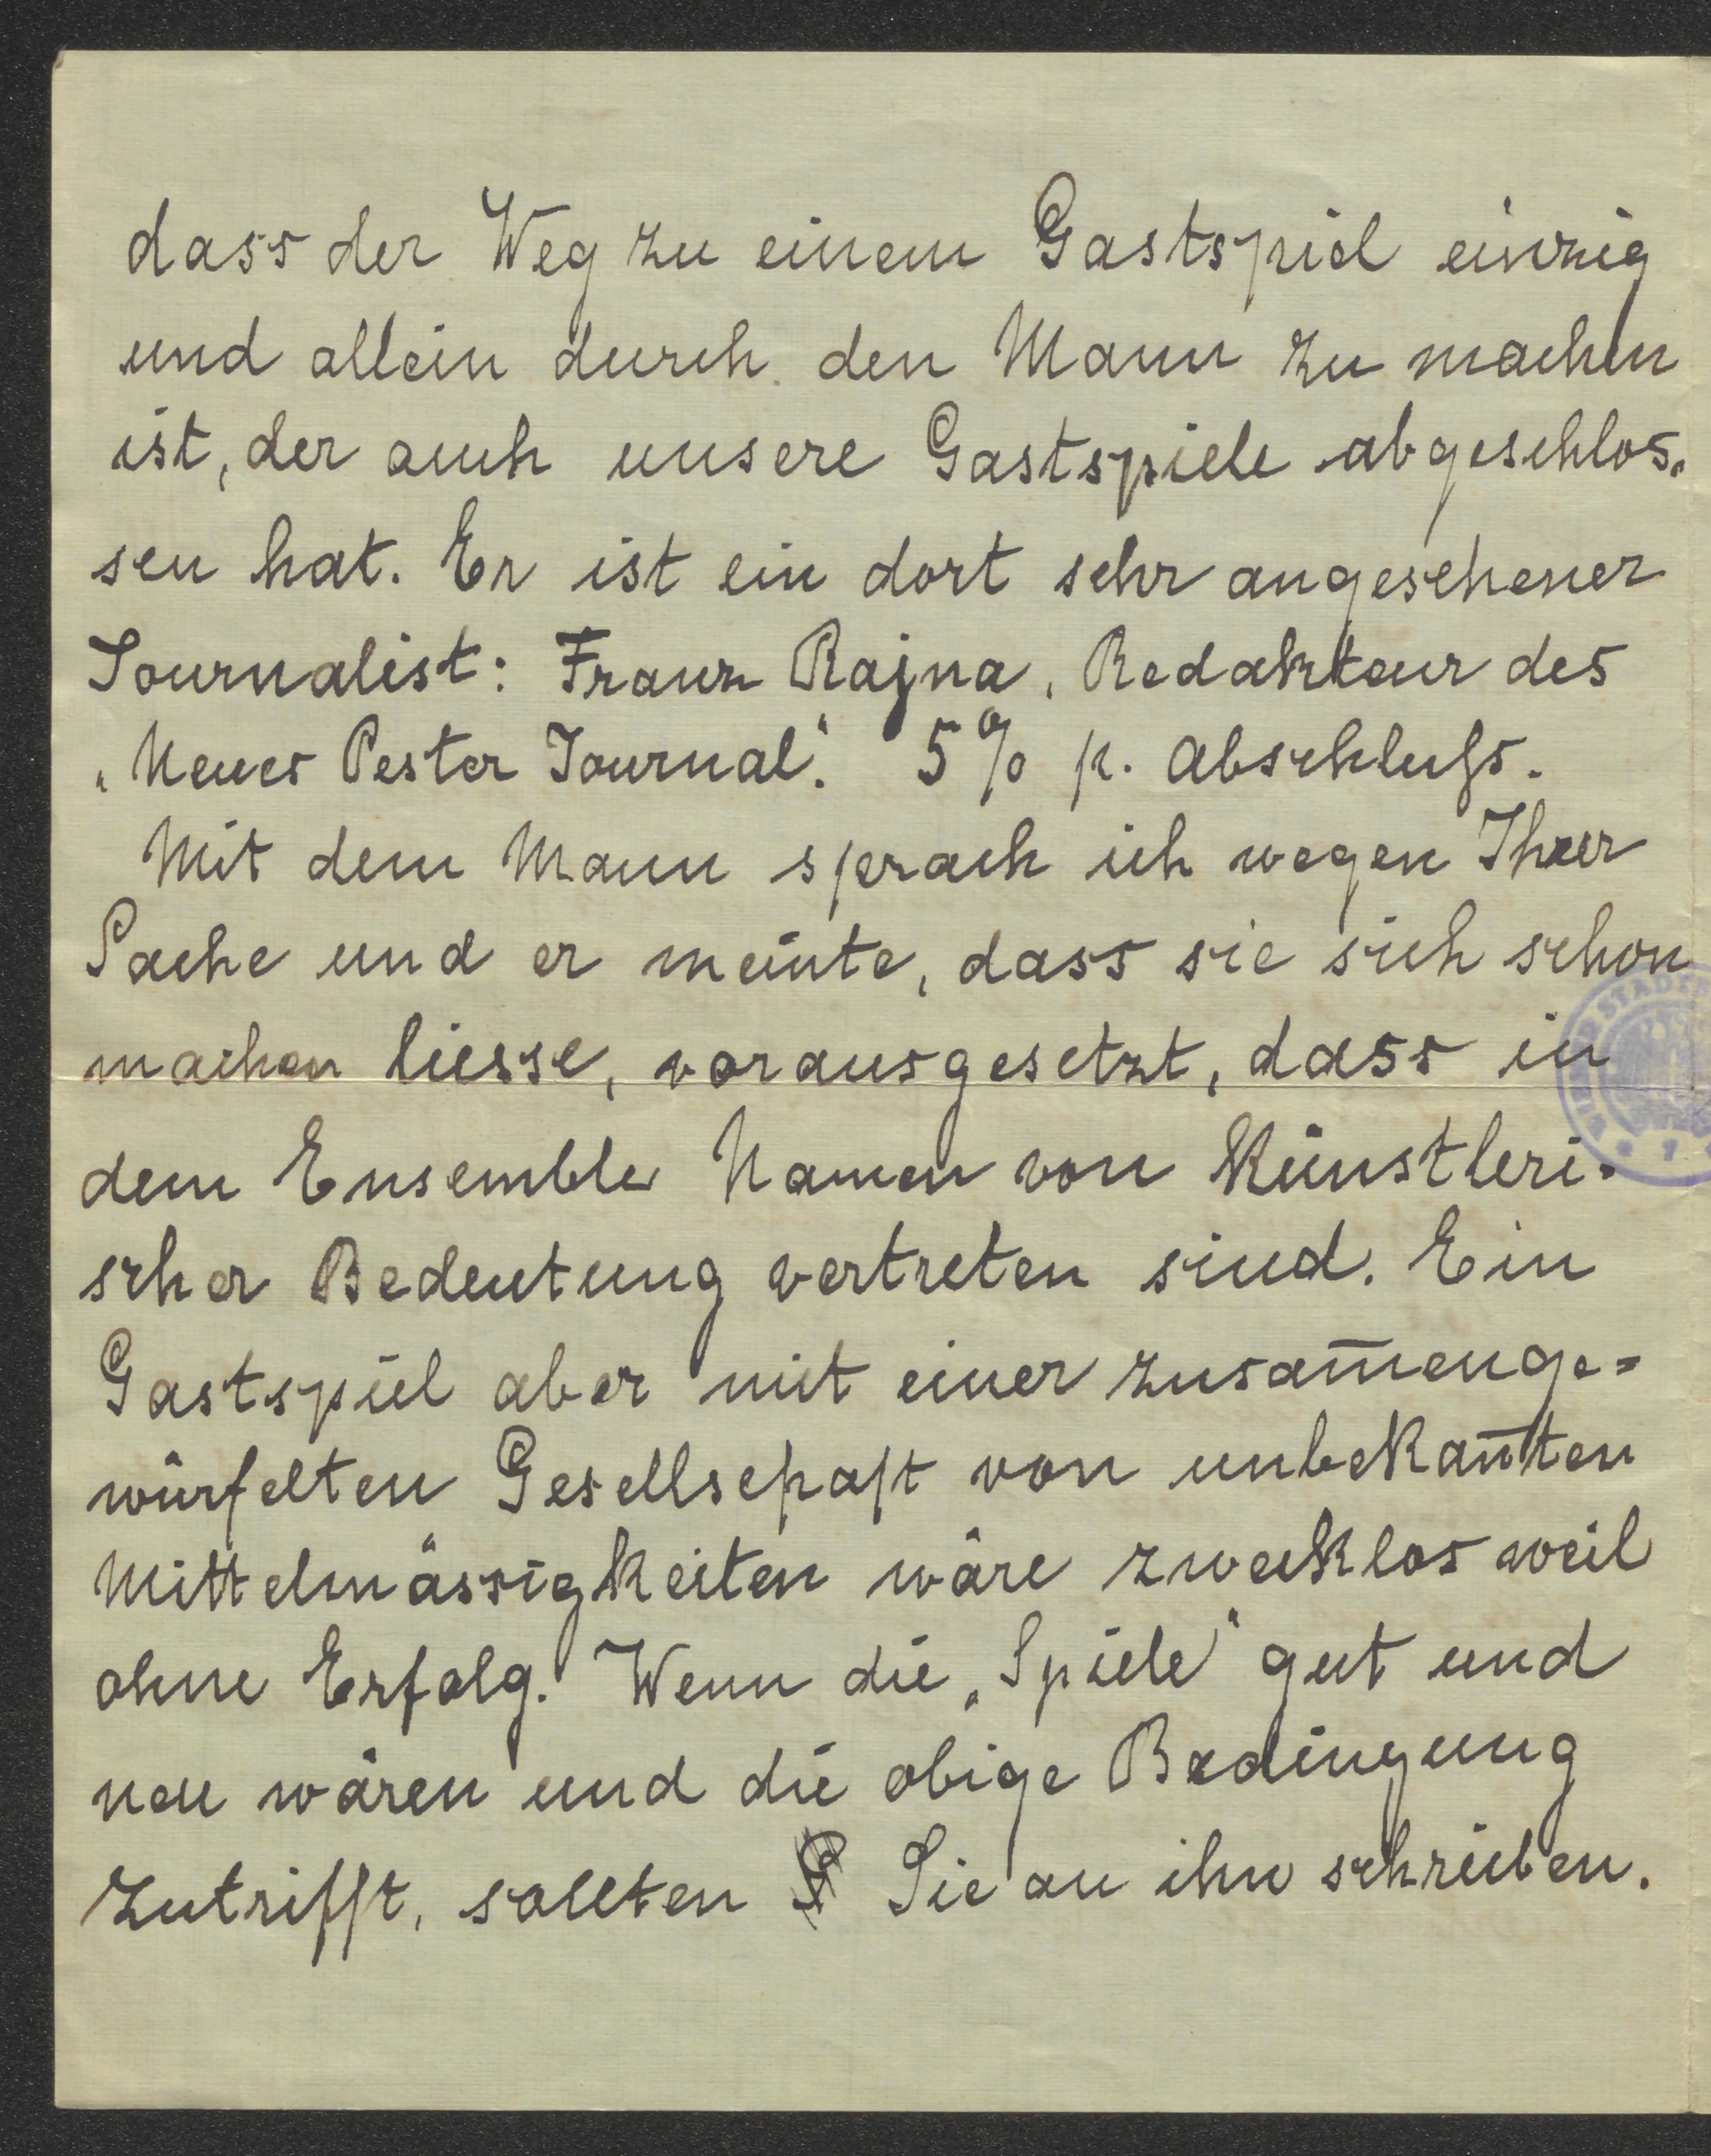 dass der Weg zu einem Gastspiel einzig
und allein durch den Mann zu machen
ist, der auch unsere Gastspiele abgeschlos-
sen hat. Er ist ein dort sehr angesehener
Journalist: Franz Rajna, Redakteur des
„Neues Pester Journal". 5% p. Abschluſs.
Mit dem Mann sprach ich wegen Ihrer
Sache und er meinte, dass sie sich schon
machen liesse, vorausgesetzt, dass in
dem Ensemble Namen von künstleri-
scher Bedeutung vertreten sind. Ein
Gastspiel aber mit einer zusam̅enge=
würfelten Gesellschaft von unbekan̅ten
Mittelmässigkeiten wäre zwecklos weil
ohne Erfolg. Wenn die „Spiele" gut und
neu wären und die obige Bedingung
zutrifft, sollten Sie an ihn schreiben.